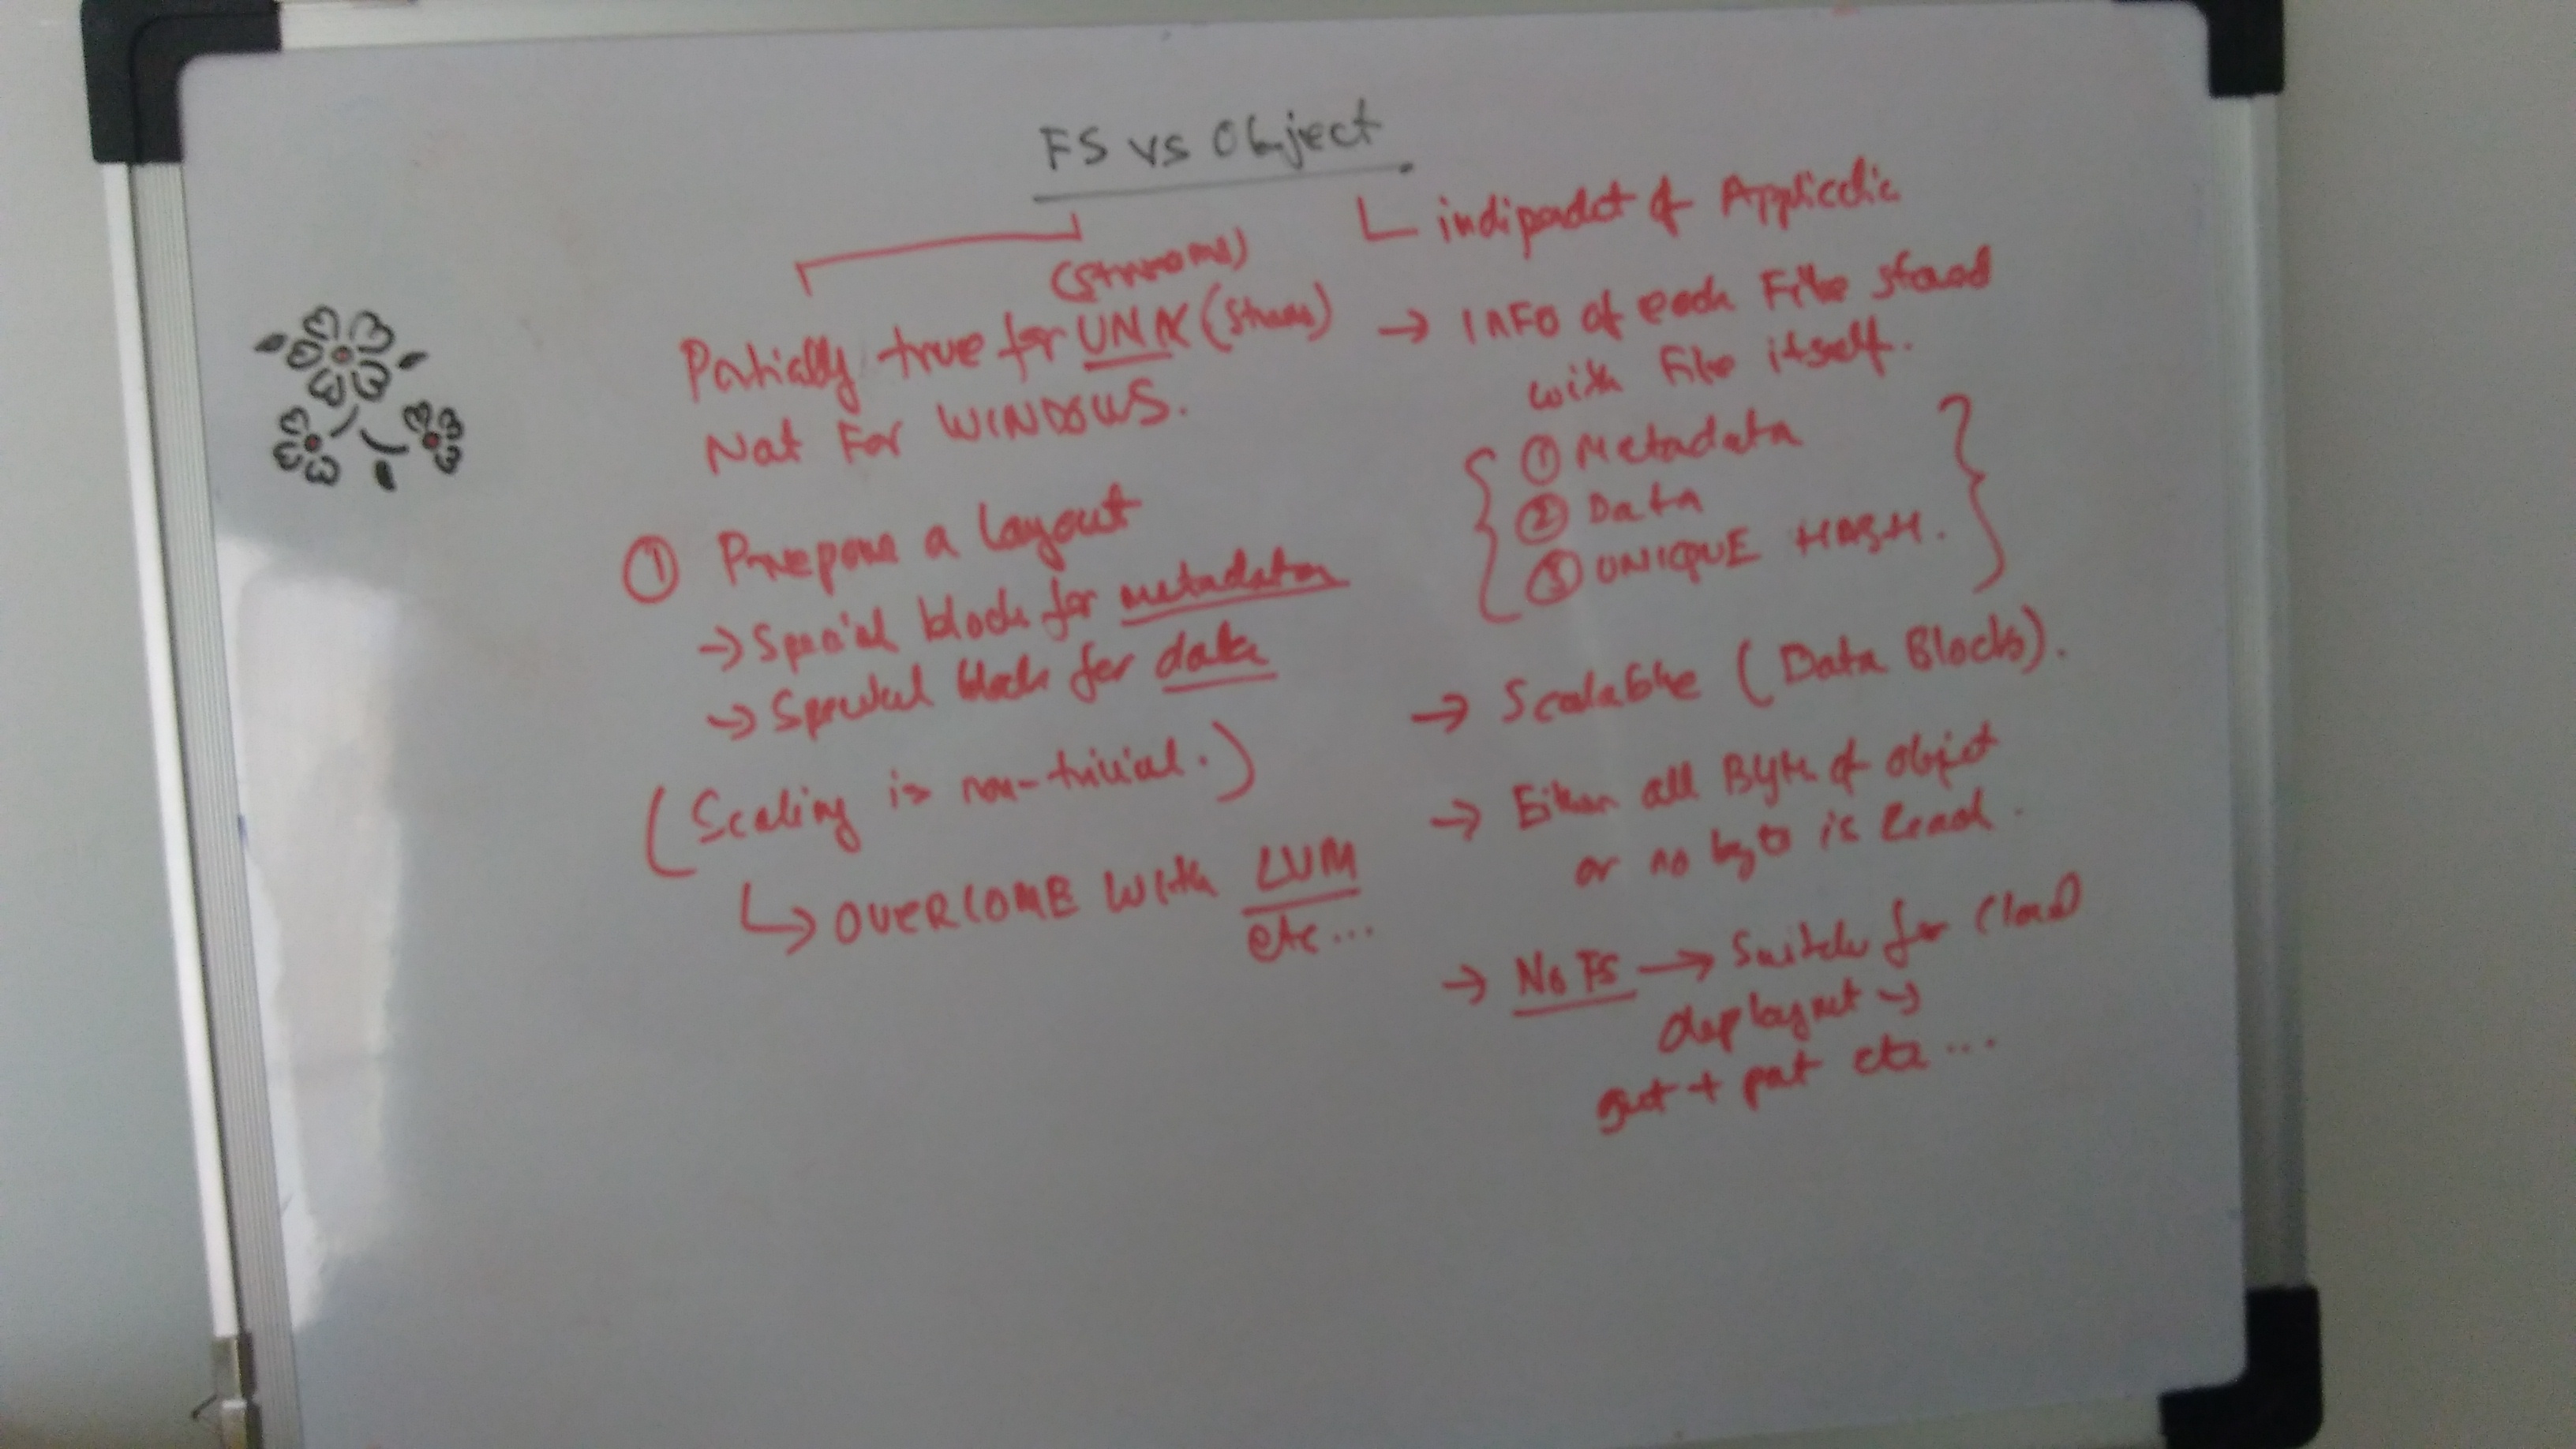 FS vs Object
(streams)
Partially true for UNIX (streams)
Not For WINDOWS.
① Prepare a layout
→ Special block for metadata
→ Special block for data
(Scaling is non-trivial.)
↳ OVERCOME with LVM
etc...
indipendet of Applicatio
→ INFO of each File stored
with File itself.
① Metadata
② Data
③ UNIQUE HASH.
→ Scalable (Data Blocks).
→ Either all Byte of object
or no byte is Read.
→ No FS → Suitable for Cloud
deployment →
get + put etc...